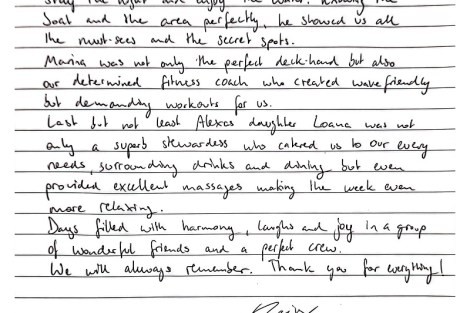 stay the night and enjoy the water. Knowing the
boat and the area perfectly, he showed us all
the must-sees and the secret spots.
Marina was not only the perfect deck-hand but also
our determined fitness coach who created wave friendly
but demanding workouts for us.
Last but not least Alexas daughter Loana was not
only a superb stewardess who catered us to our every
needs, surrounding drinks and dining but even
provided excellent massages making the week even
more relaxing.
Days filled with harmony, laughs and joy in a group
of wonderful friends and a perfect crew.
We will always remember. Thank you for everything!